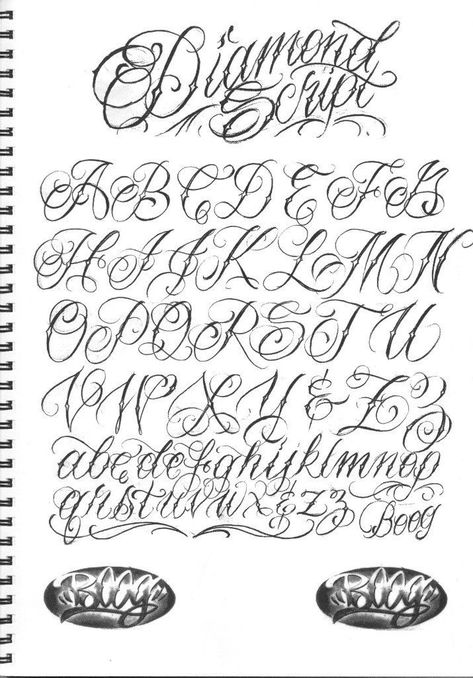 Diamond
Script
A B C D E F G
H I J K L M N
O P Q R S T U
V W X Y & Z Z
a b c d e f g h i j k l m n o p
q r s t u v w x & z z Boog
Boog Boog